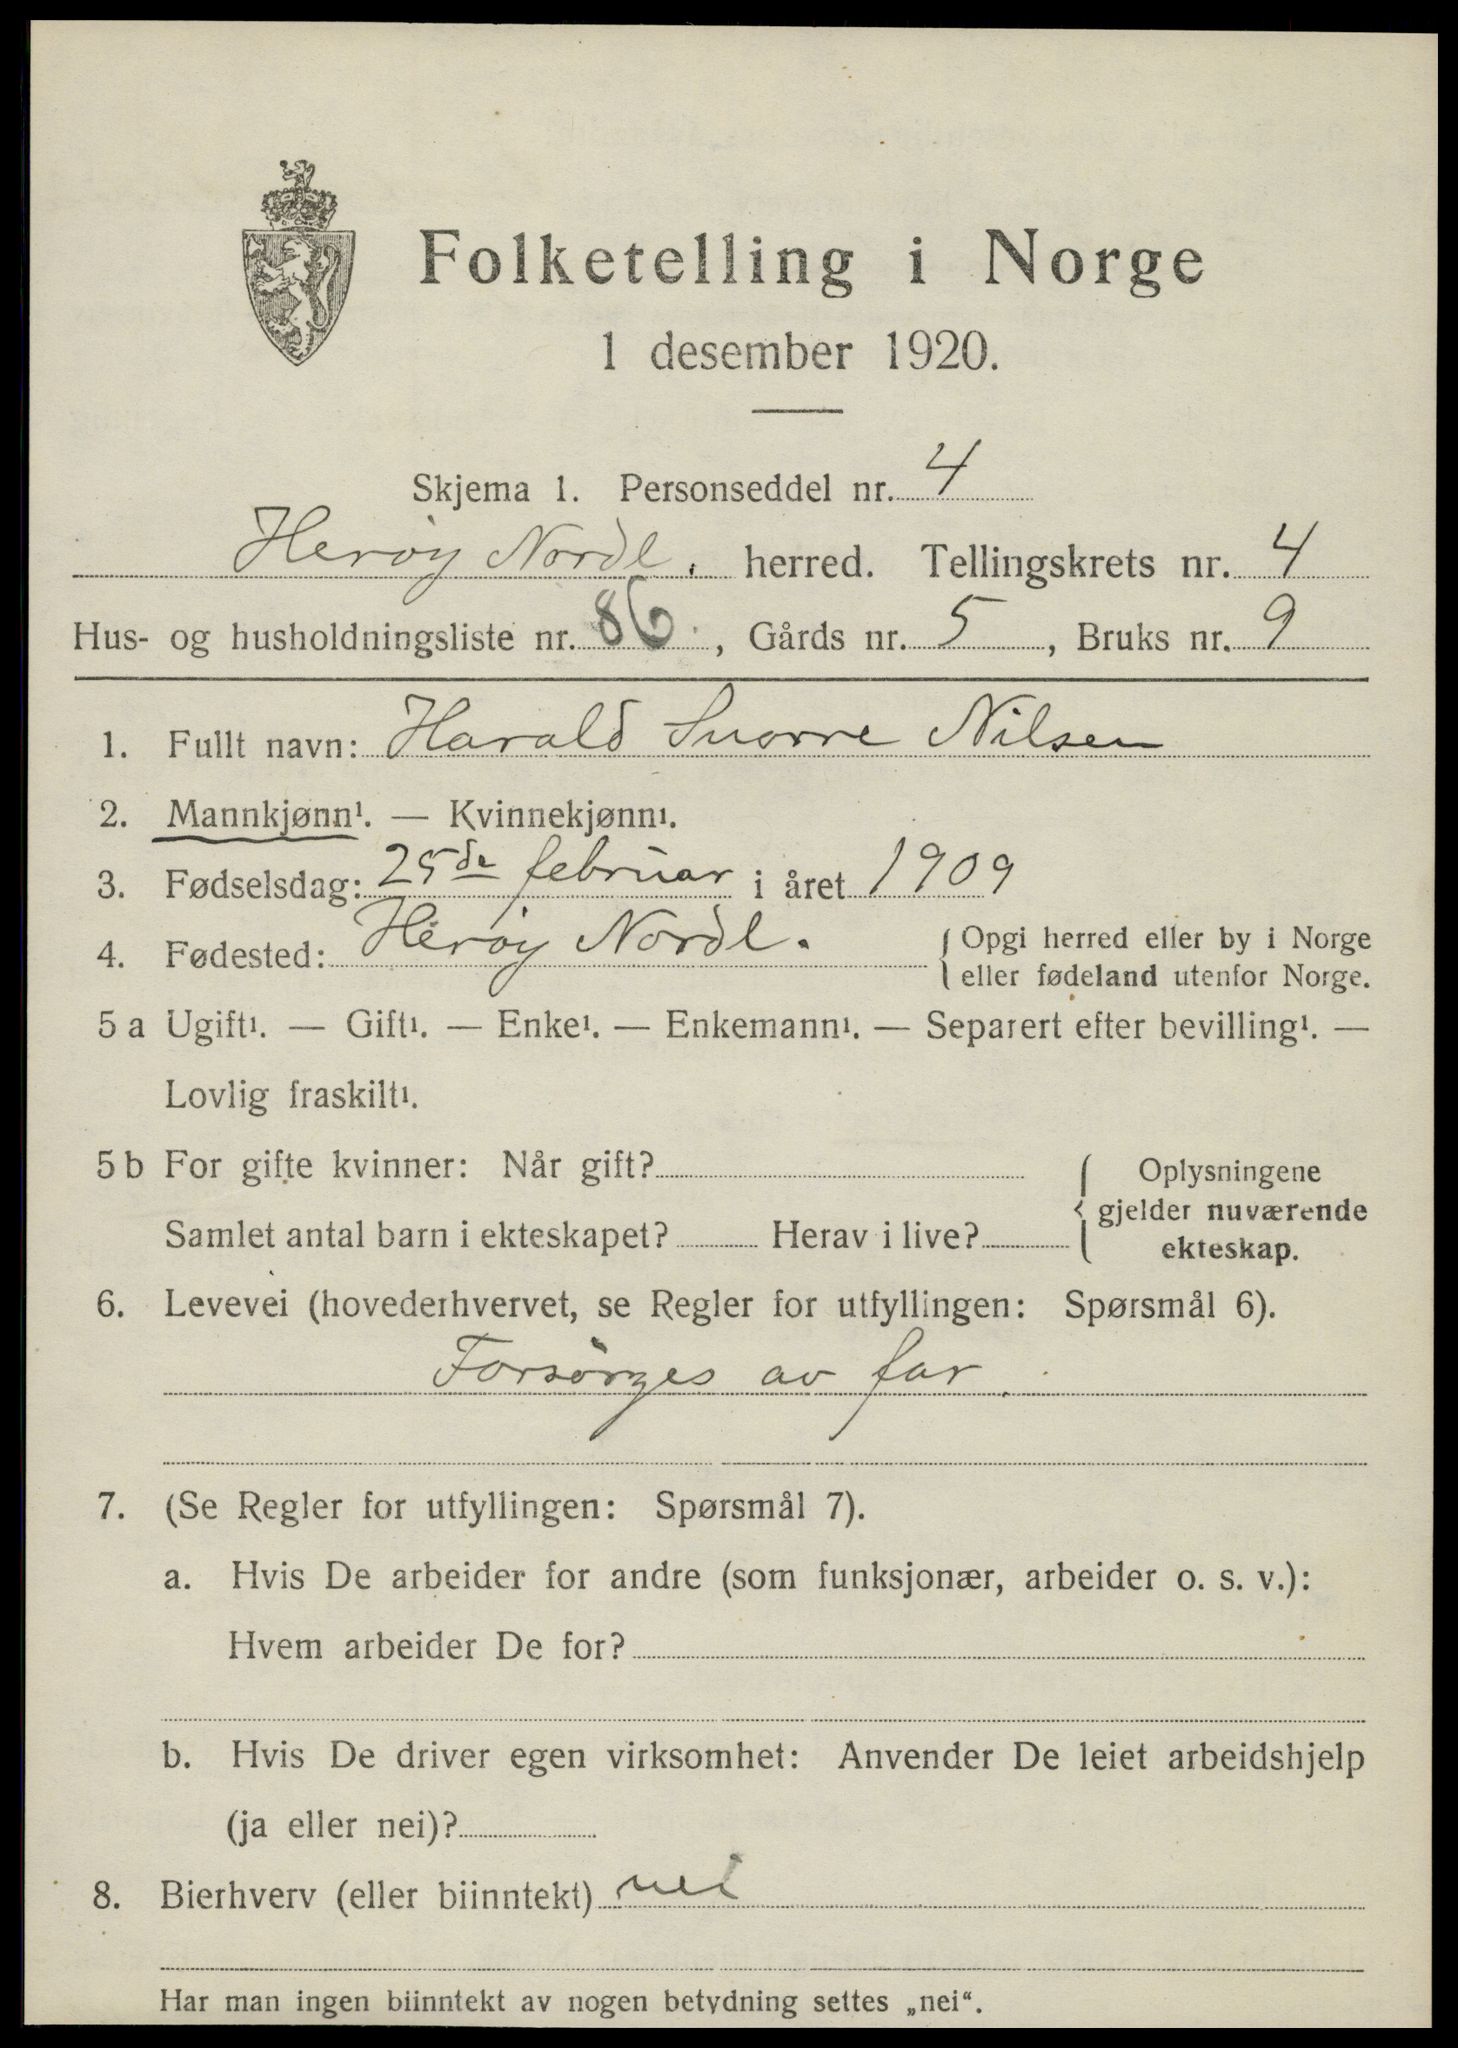 Folketelling i Norge
1 desember 1920.
Skjema 1. Personseddel nr. 4
Herøy Nordl. herred. Tellingskrets nr. 4
Hus- og husholdningsliste nr. 86, Gårds nr. 5, Bruks nr. 9
1. Fullt navn: Harald Snorre Nilsen
2. Mannkjønn¹. — Kvinnekjønn¹.
3. Fødselsdag: 25de februar i året 1909
4. Fødested: Herøy Nordl. { Opgi herred eller by i Norge
eller fødeland utenfor Norge.
5 a Ugift¹. — Gift¹. — Enke¹. — Enkemann¹. — Separert efter bevilling¹. —
Lovlig fraskilt¹.
5 b For gifte kvinner: Når gift? { Oplysningene
gjelder nuværende
Samlet antal barn i ekteskapet? Herav i live?
ekteskap.
6. Levevei (hovederhvervet, se Regler for utfyllingen: Spørsmål 6).
Forsørges av far.
7. (Se Regler for utfyllingen: Spørsmål 7).
a. Hvis De arbeider for andre (som funksjonær, arbeider o. s. v.):
Hvem arbeider De for?
b. Hvis De driver egen virksomhet: Anvender De leiet arbeidshjelp
(ja eller nei)?
8. Bierhverv (eller biinntekt) nei
Har man ingen biinntekt av nogen betydning settes „nei“.